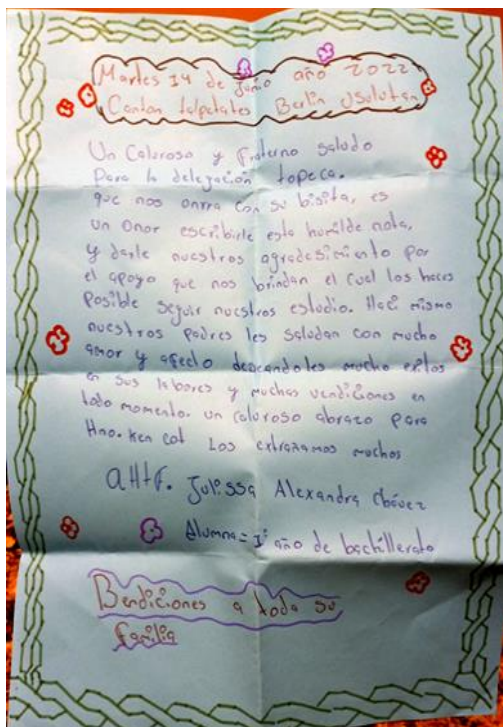 Martes 14 de Junio año 2022
Canton talpetates Berlin Usulutan
Un Caloroso y fraterno saludo
para la delegación topeca.
que nos onrra con su bisita, es
un onor escribirle esta humilde nota,
y darle nuestros agradesimiento por
el apoyo que nos brindan el cual los haces
posible seguir nuestros estudio. Haci mismo
nuestros padres les saludan con mucho
amor y afecto deseandoles mucho exitos
en sus labores y muchas vendiciones en
todo momento. un caluroso abrazo para
Hno. Ken cot Los extrañamos muchos
Julissa Alexandra Chávez
Alumna = 1º año de bachillerato
Bendiciones a toda su
familia